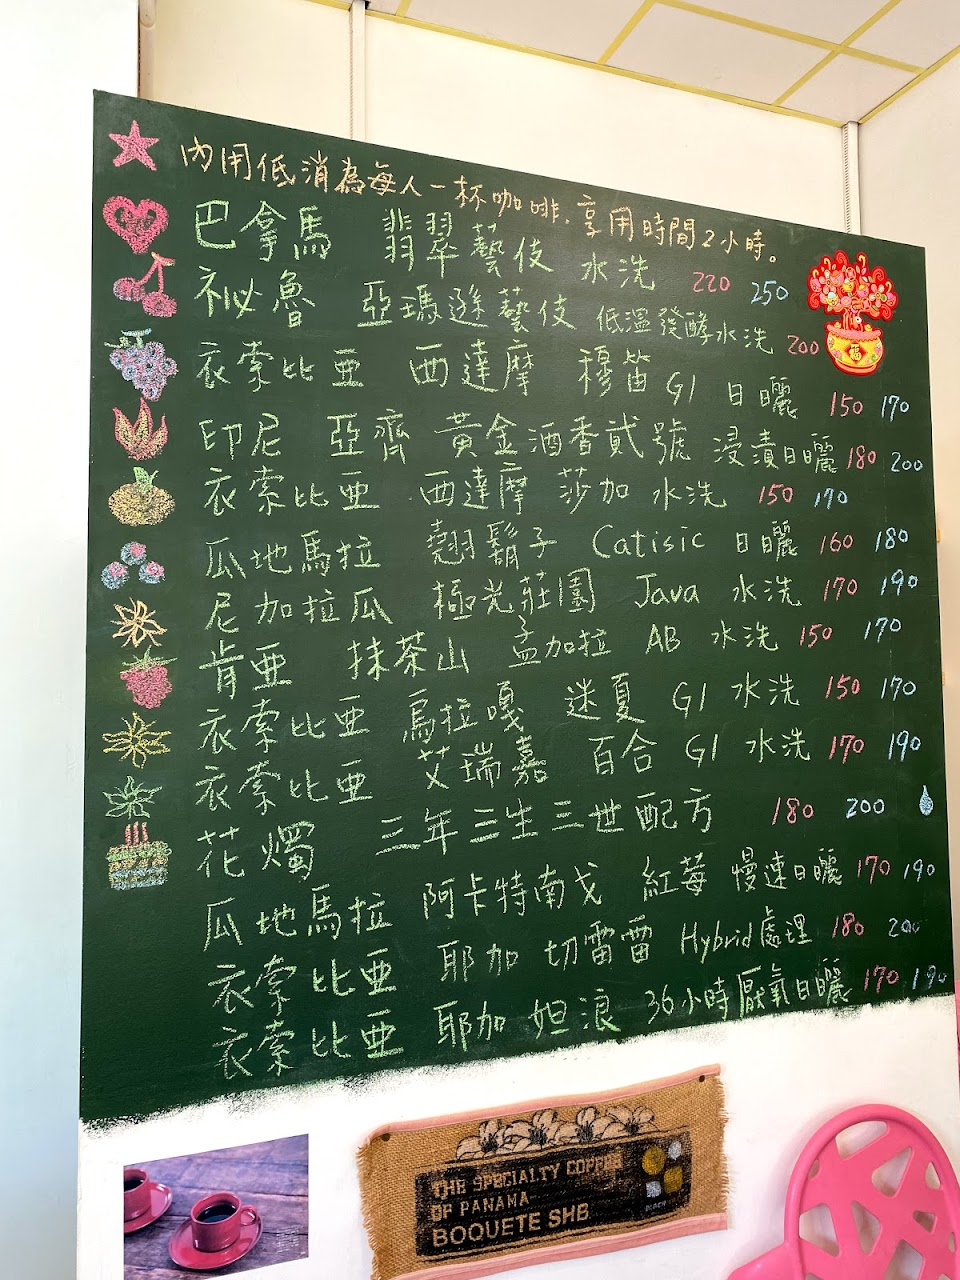 內用低消為每人一杯咖啡.享用時間2小時。
巴拿馬 翡翠藝伎 水洗 220 250
祕魯 亞瑪遜藝伎 低溫發酵水洗 200
衣索比亞 西達摩 穆笛 G1 日曬 150 170
印尼 亞齊 黃金酒香貳號 浸漬日曬 180 200
衣索比亞 西達摩 莎加 水洗 150 170
瓜地馬拉 翹鬍子 Catisic 日曬 160 180
尼加拉瓜 極光莊園 Java 水洗 170 190
肯亞 抹茶山 孟加拉 AB 水洗 150 170
衣索比亞 烏拉嘎 迷夏 G1 水洗 150 170
衣索比亞 艾瑞嘉 百合 G1 水洗 170 190
花燭 三年三生三世配方 180 200
瓜地馬拉 阿卡特南戈 紅莓 慢速日曬 170 190
衣索比亞 耶加 切雷雷 Hybrid處理 180 200
衣索比亞 耶加 妲浪 36小時厭氧日曬 170 190
福
THE SPECIALTY COFFEE
OF PANAMA
BOQUETE SHB